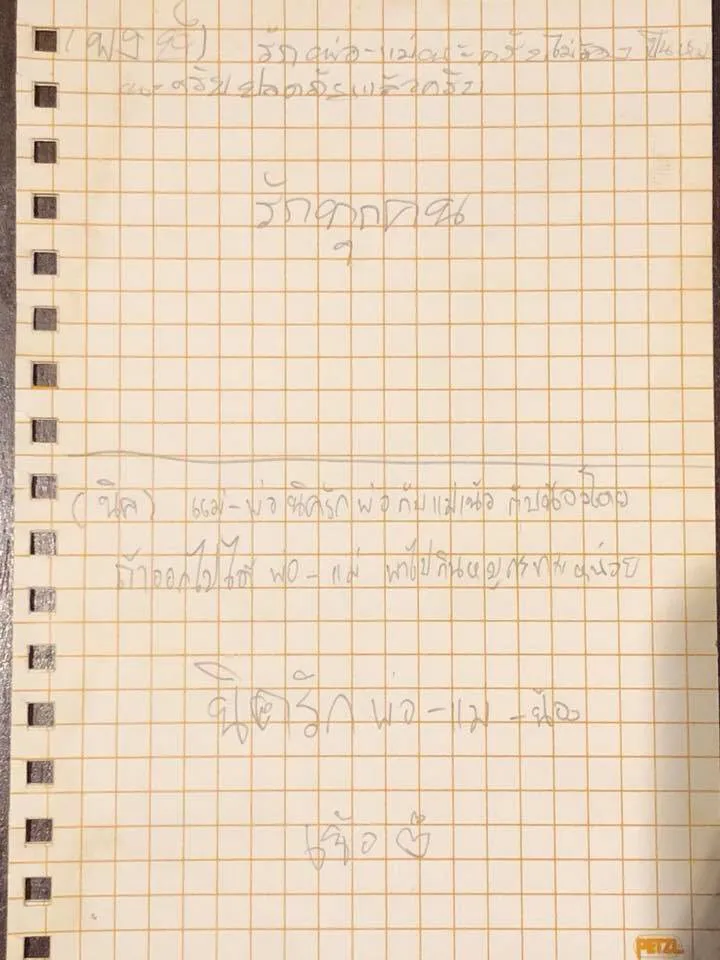 (พงษ์) รักพ่อ-แม่นะครับไม่ต้องเป็นห่วง
นะครับปลอดภัยแล้วครับ
รักทุกคน
(นิค) แม่-พ่อ นิครักพ่อกับแม่ กับน้องโดย
ถ้าออกไปได้ พ่อ-แม่ พาไปกินหมูกระทะหน่อย
นิครัก พ่อ-แม่ -น้อง
PETZL